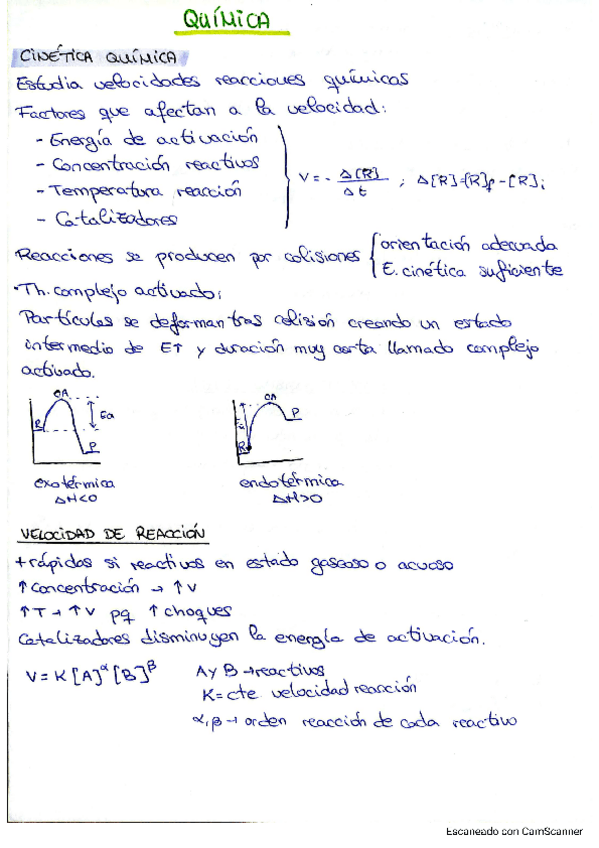 QUÍMICA
CINÉTICA QUÍMICA
Estudia velocidades reacciones químicas
Factores que afectan a la velocidad:
- Energía de activación
- Concentración reactivos
- Temperatura reacción
- Catalizadores
V = - Δ[R] / Δt ; Δ[R]=[R]f - [R]i
Reacciones se producen por colisiones { orientación adecuada
E. cinética suficiente
· Th. complejo activado:
Partículas se deforman tras colisión creando un estado
intermedio de E↑ y duración muy corta llamado complejo
activado.
CA
R
Ea
P
exotérmica
ΔH<0
CA
P
Ea
R
endotérmica
ΔH>0
VELOCIDAD DE REACCIÓN
+ rápidas si reactivos en estado gaseoso o acuoso
↑ concentración → ↑ V
↑ T → ↑ V pq ↑ choques
Catalizadores disminuyen la energía de activación.
V = K [A]^α [B]^β
A y B → reactivos
K = cte velocidad reacción
α, β → orden reacción de cada reactivo
Escaneado con CamScanner